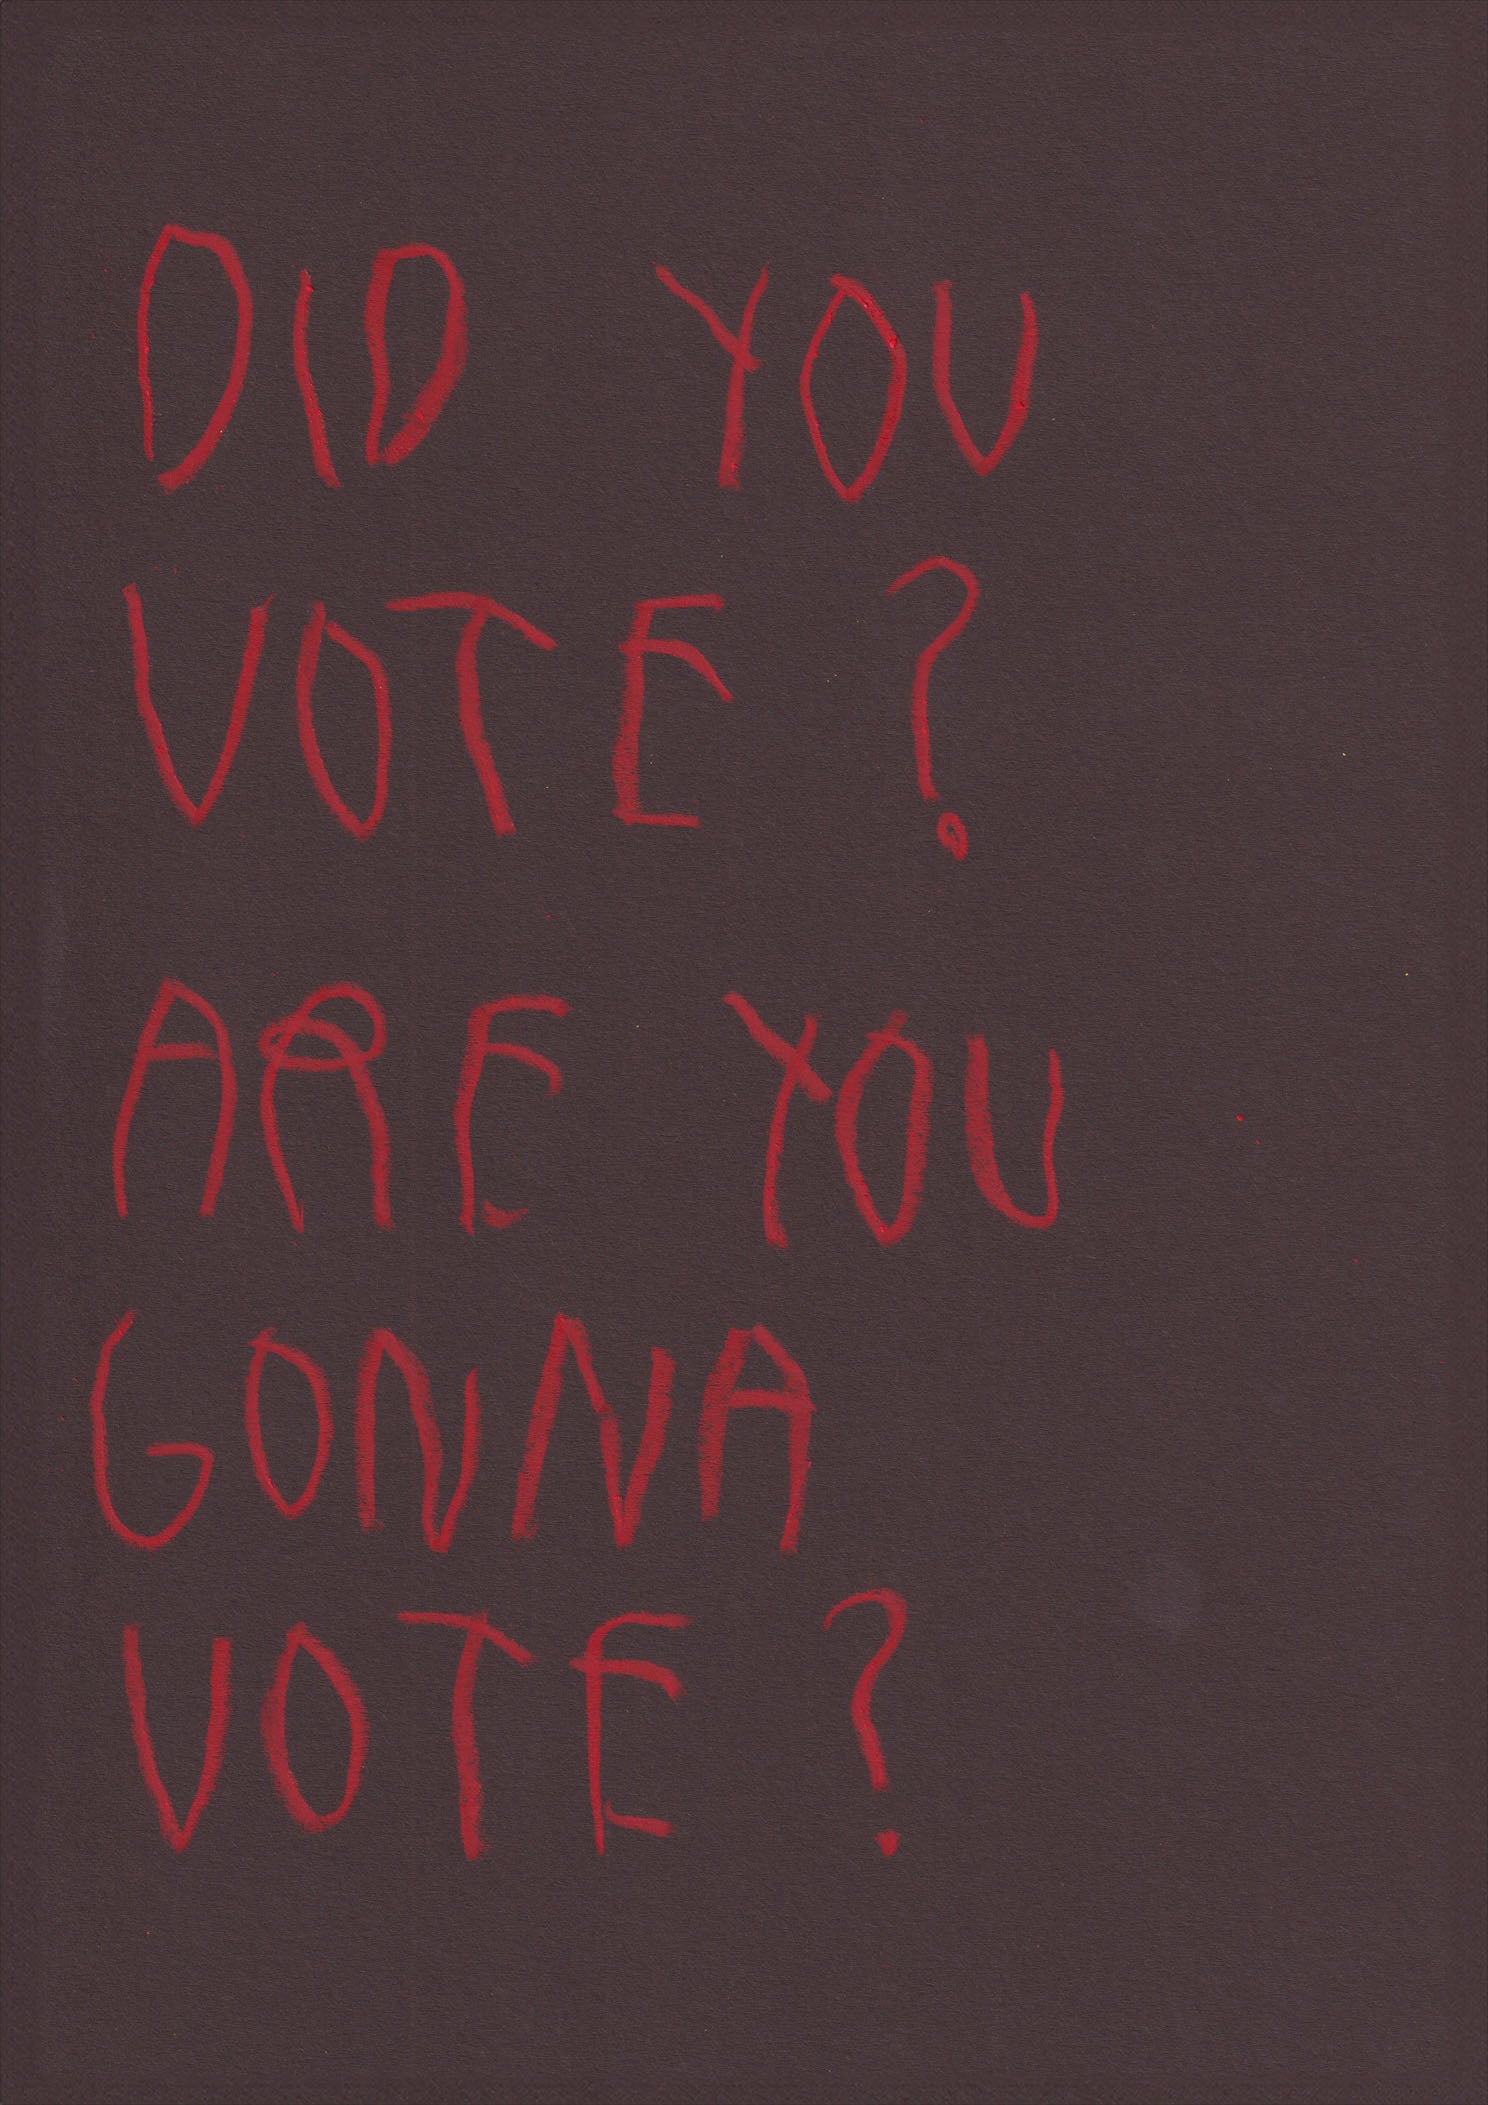 DID YOU
VOTE?
ARE YOU
GONNA
VOTE?